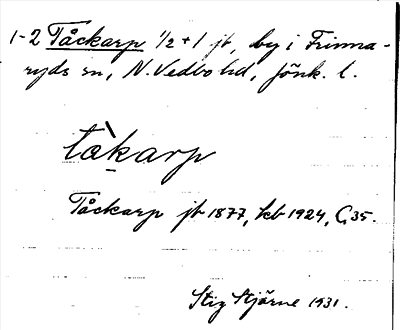 1-2 Tåckarp 1/2 + 1 jb, by i Frinna-
ryds sn, N. Vedbo hd, Jönk. l.
tàkarp
Tåckarp jb 1877, kb 1924, C, 35.
Stig Stjärne 1931.